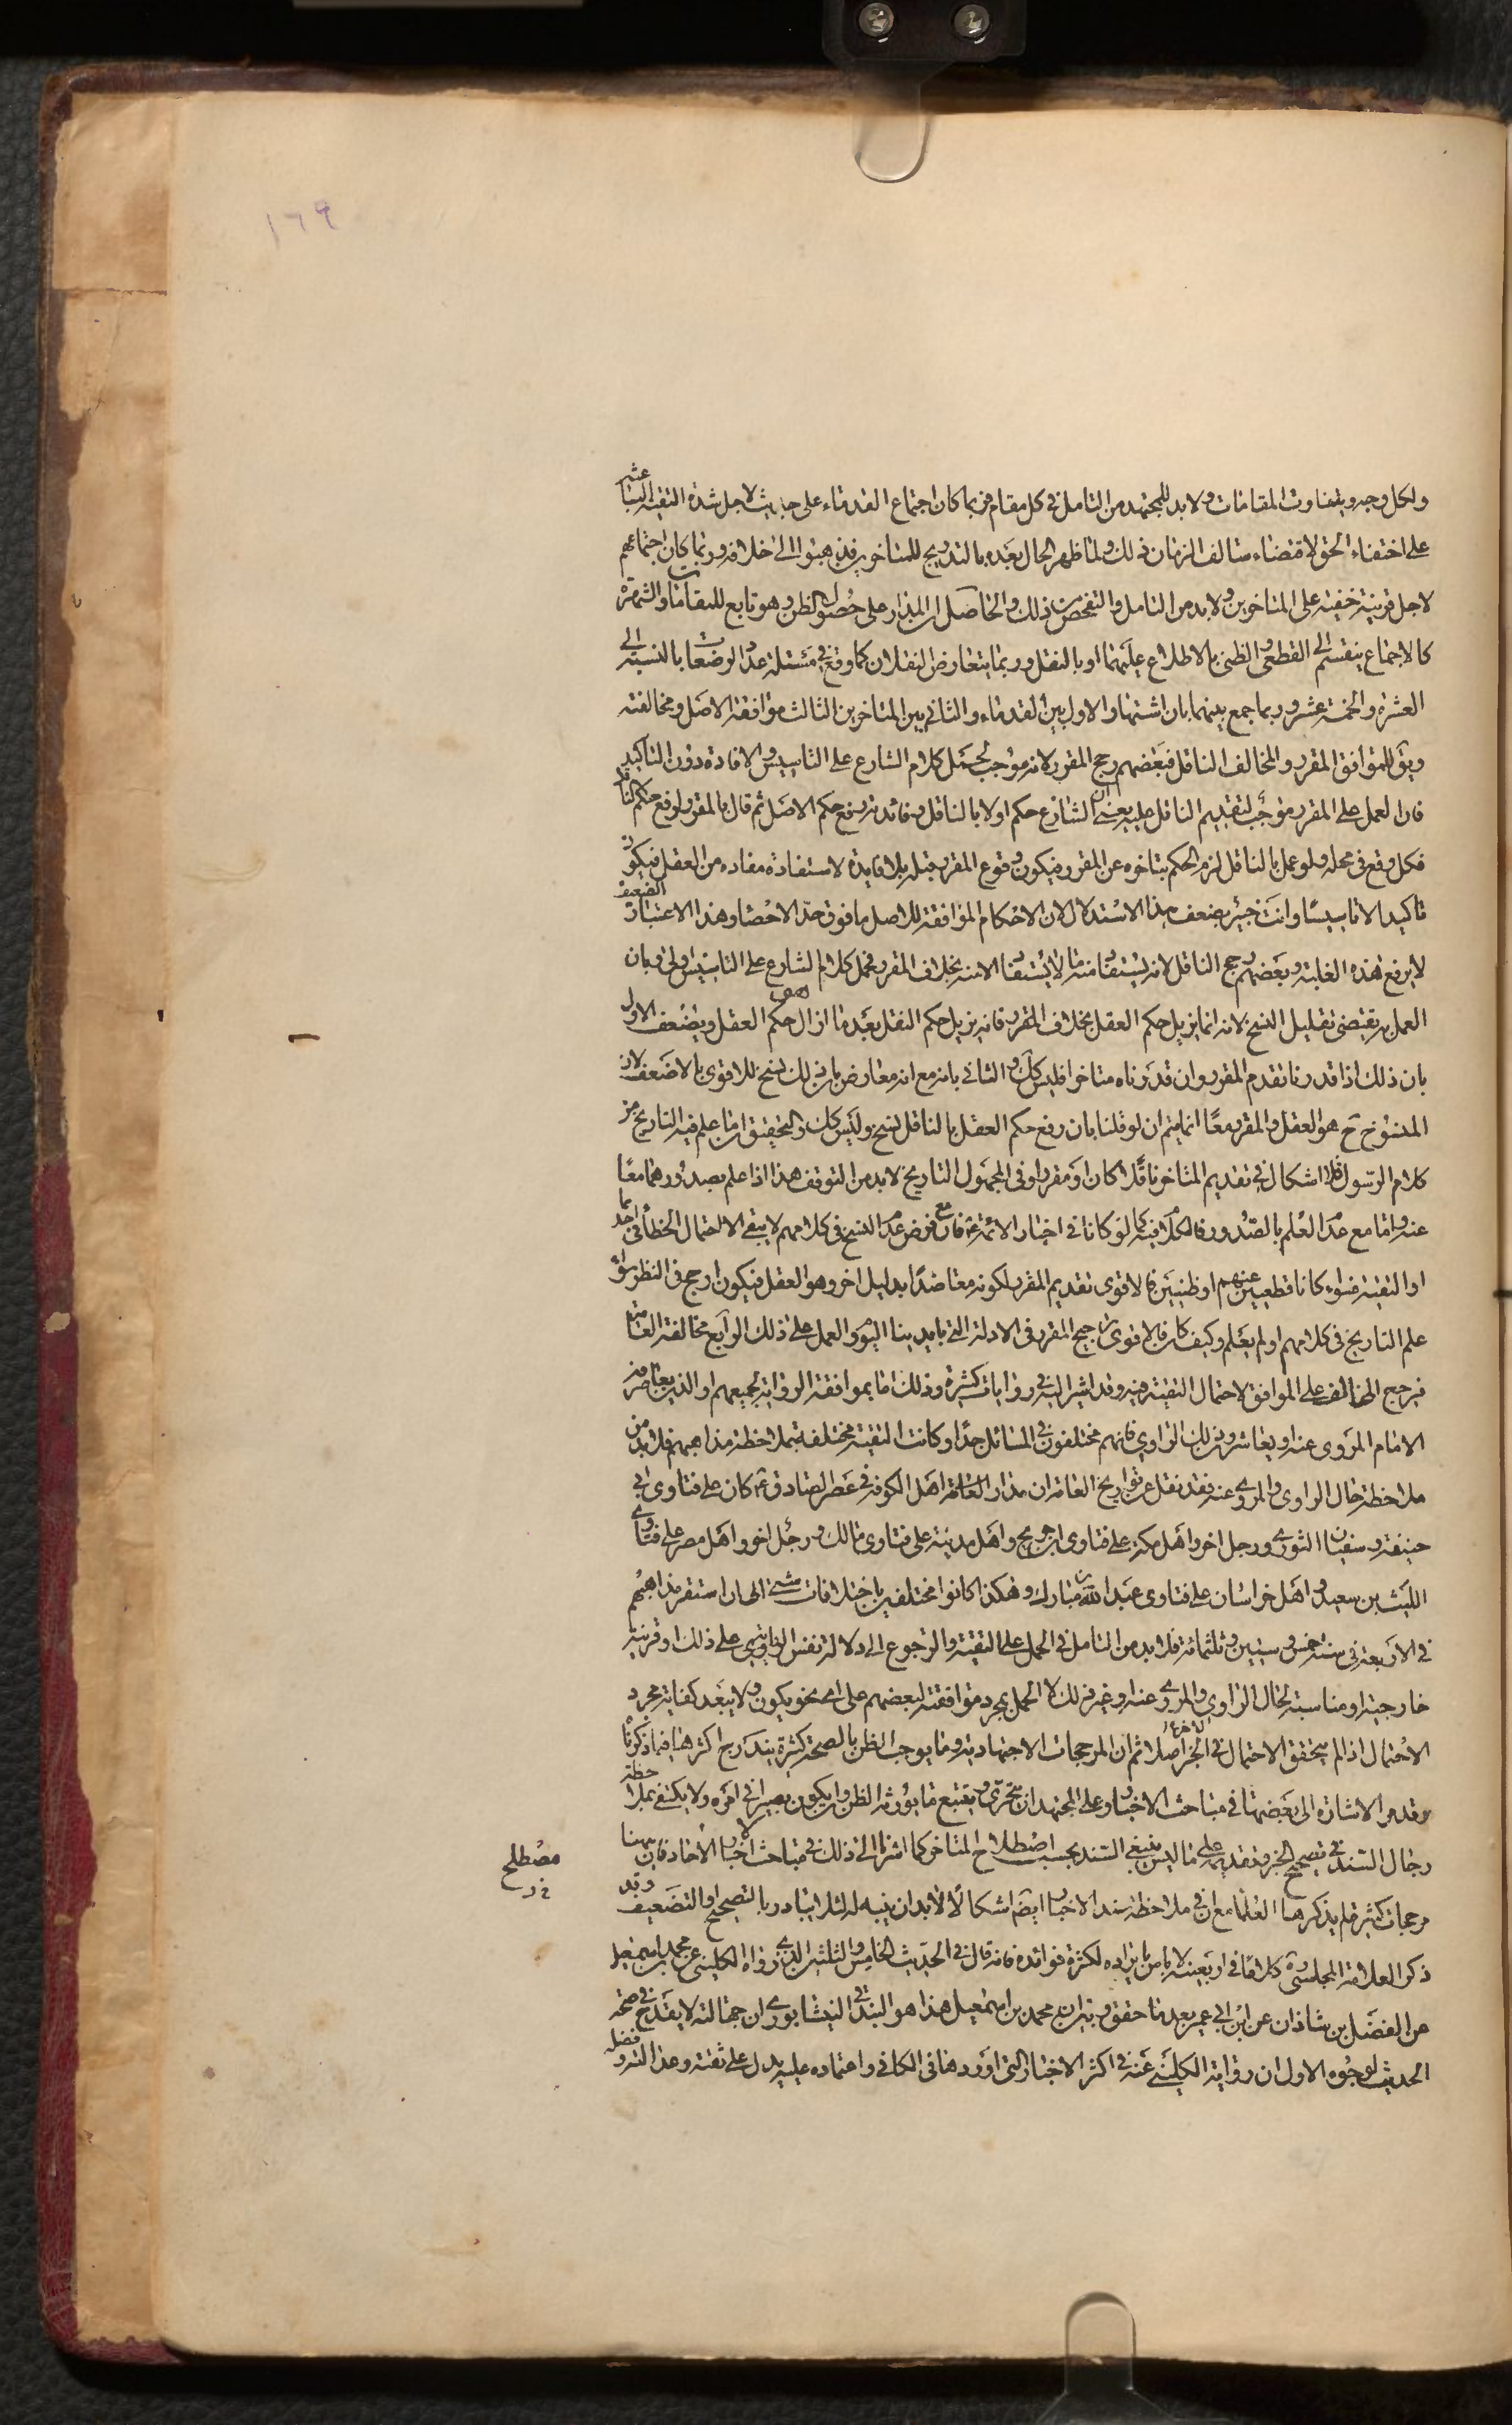 ١٦٩
ولكل وجه ويتفاوت المقامات ولا بد للمجتهد من التامل في كل مقام فربما كان اجتماع القدماء على حديث لاجل شدة التقية الباعثة
على اختفاء الحق لاقتضاء سالف الزمان ذلك ولما ظهر الحال بعده بالتدريج للمتاخرين فذهبوا الى خلافه وربما كان اجتماعهم
لاجل قرينة خفية على المتاخرين ولا بد من التامل والتفحص من ذلك والحاصل ان المدار على حصول الظن وهو تابع للمقامات والشهرة
كالاجماع ينقسم الى القطعي والظني بالاطلاع عليهما او بالنقل وربما يتعارض النقلان كما وقع في مسئلة عدد الرضعات بالنسبة الى
العشرة والخمسة عشر وربما جمع بينهما بان اشتهار الاول بين القدماء والثاني بين المتاخرين الثالث موافقة الاصل ومخالفته
ويق للموافق المقرر وللمخالف الناقل فبعضهم رجح المقرر لانه موجب لحمل كلام الشارع على التاسيس والافادة دون التاكيد
فان العمل على المقرر موجب لتقديم الناقل عليه يعني ان الشارع حكم اولا بالناقل وفائدته رفع حكم الاصل ثم قال بالمقرر لرفع حكم الناقل
فكل وقع في محله ولو عمل بالناقل لزم الحكم بتاخره عن المقرر فيكون وقوع المقرر قبله بلا فايدة لاستفادة مفاده من العقل فيكون
تاكيدا لا تاسيسا وانت خبير بضعف هذا الاستدلال لان الاحكام الموافقة للاصل ما فوق حد الاحصاء وهذا الاعتبار الضعيف
لا يرفع هذه الغلبة وبعضهم رجح الناقل لانه يستفاد منه ما لا يستفاد الا منه بخلاف المقرر فحمل كلام الشارع على التاسيس اولى وبان
العمل به يقتضى تقليل النسخ لانه انما يزيل حكم العقل بخلاف المقرر فانه يزيل حكم النقل بعد ما ازال حكم العقل ويضعف الاول
بان ذلك اذا قدرنا تقدم المقرر وان قدرناه متاخرا فليس كك والثاني بانه مع انه معارض بان ذلك نسخ للاقوى بالاضعف لان
المنسوخ ح هو العقل والمقرر معا انما يتم ان لو قلنا بان رفع حكم العقل بالناقل نسخ وليس كك والتحقيق ان ما علم فيه التاريخ من
كلام الرسول فلا اشكال في تقديم المتاخر ناقلا كان او مقررا وفي المجهول التاريخ لا بد من التوقف هذا اذا علم بصدورهما معا
عنه واما مع عدم العلم بالصدور فالكلام فيه كما لو كانا في اخبار الائمة ع فان مع فرض عدم النسخ في كلامهم لا يبقى الا احتمال الخطأ في احدهما
او التقية فسواء كانا قطعيين عنهم او ظنيين فالاقوى تقديم المقرر لكونه معاضدا بدليل اخر وهو العقل فيكون ارجح في النظر سواء
علم التاريخ في كلامهم او لم يعلم وكيف كان فالاقوى ترجيح المقرر في الادلة التي بايدينا اليوم والعمل على ذلك الرابع مخالفة العامة
فيرجح المخالف على الموافق لاحتمال التقية فيه وقد اشير اليه في روايات كثيرة وذلك اما بموافقة الرواية لجميعهم او الذين يعاصرون
الامام المروي عنه او يعاشرون ذلك الراوي فانهم مختلفون في المسائل جدا وكانت التقية مختلفة بملاحظة مذاهبهم فلا بد من
ملاحظة حال الراوي والمروي عنه فقد نقل عن تواريخ العامة ان مدار العامة اهل الكوفة في عصر الصادق ع كان على فتاوى ابي
حنيفة وسفيان الثوري ورجل اخر واهل مكة على فتاوى ابن جريج واهل مدينة على فتاوى مالك ورجل اخر واهل مصر على فتاوى
الليث بن سعيد واهل خراسان على فتاوى عبد الله بن مبارك وهكذا كانوا مختلفين باختلافات شتى الى ان استقر مذاهبهم
في الاربعة في سنة خمس وستين وثلثمائة فلا بد من التامل في الحمل على التقية والرجوع الى دلالة نفس الروايتين على ذلك او قرينة
خارجية او مناسبة لحال الراوي والمروي عنه او غير ذلك لا الحمل بمجرد موافقته لبعضهم على اي نحو يكون ولا يبعد كفاية مجرد
الاحتمال اذا لم يتحقق الاحتمال في الخبر الاخر اصلا ثم ان المرجحات الاجتهادية وما يوجب الظن بالصحة كثيرة يندرج اكثرها فيما ذكرنا
وقد مر الاشارة الى بعضها في مباحث الاخبار وعلى المجتهد ان يتحرى ويتتبع ما يورث الظن وان يكون بصيرا في امره ولا يكتفي بملاحظة
رجال السند في تصحيح الخبر وتقديمه على ما ليس بنقي السند بحسب اصطلاح المتاخر كما اشرنا الى ذلك في مباحث اخبار الاحاد فان هنا
مرجحات كثيرة لم يذكرها العلماء مع ان في ملاحظة سند الاخبار ايضا اشكالا لا بد ان ينبه له لئلا يتبادر بالتصحيح والتضعيف وقد
ذكر العلامة المجلسي ره كلاما في اربعينه لا باس بايراده لكثرة فوائده فانه قال في الحديث الخامس والثلثين الذي رواه الكليني عن محمد بن اسمعيل
عن الفضل بن شاذان عن ابن ابي عمير بعد ما حقق وبين ان محمد بن اسمعيل هذا هو البندقي النيشابوري ان جهالته لا يقدح في صحة
الحديث لوجوه الاول ان رواية الكليني عنه في اكثر الاخبار التي اوردها في الكافي واعتماده عليه يدل على ثقته وعدالته وفضله
مصطلح